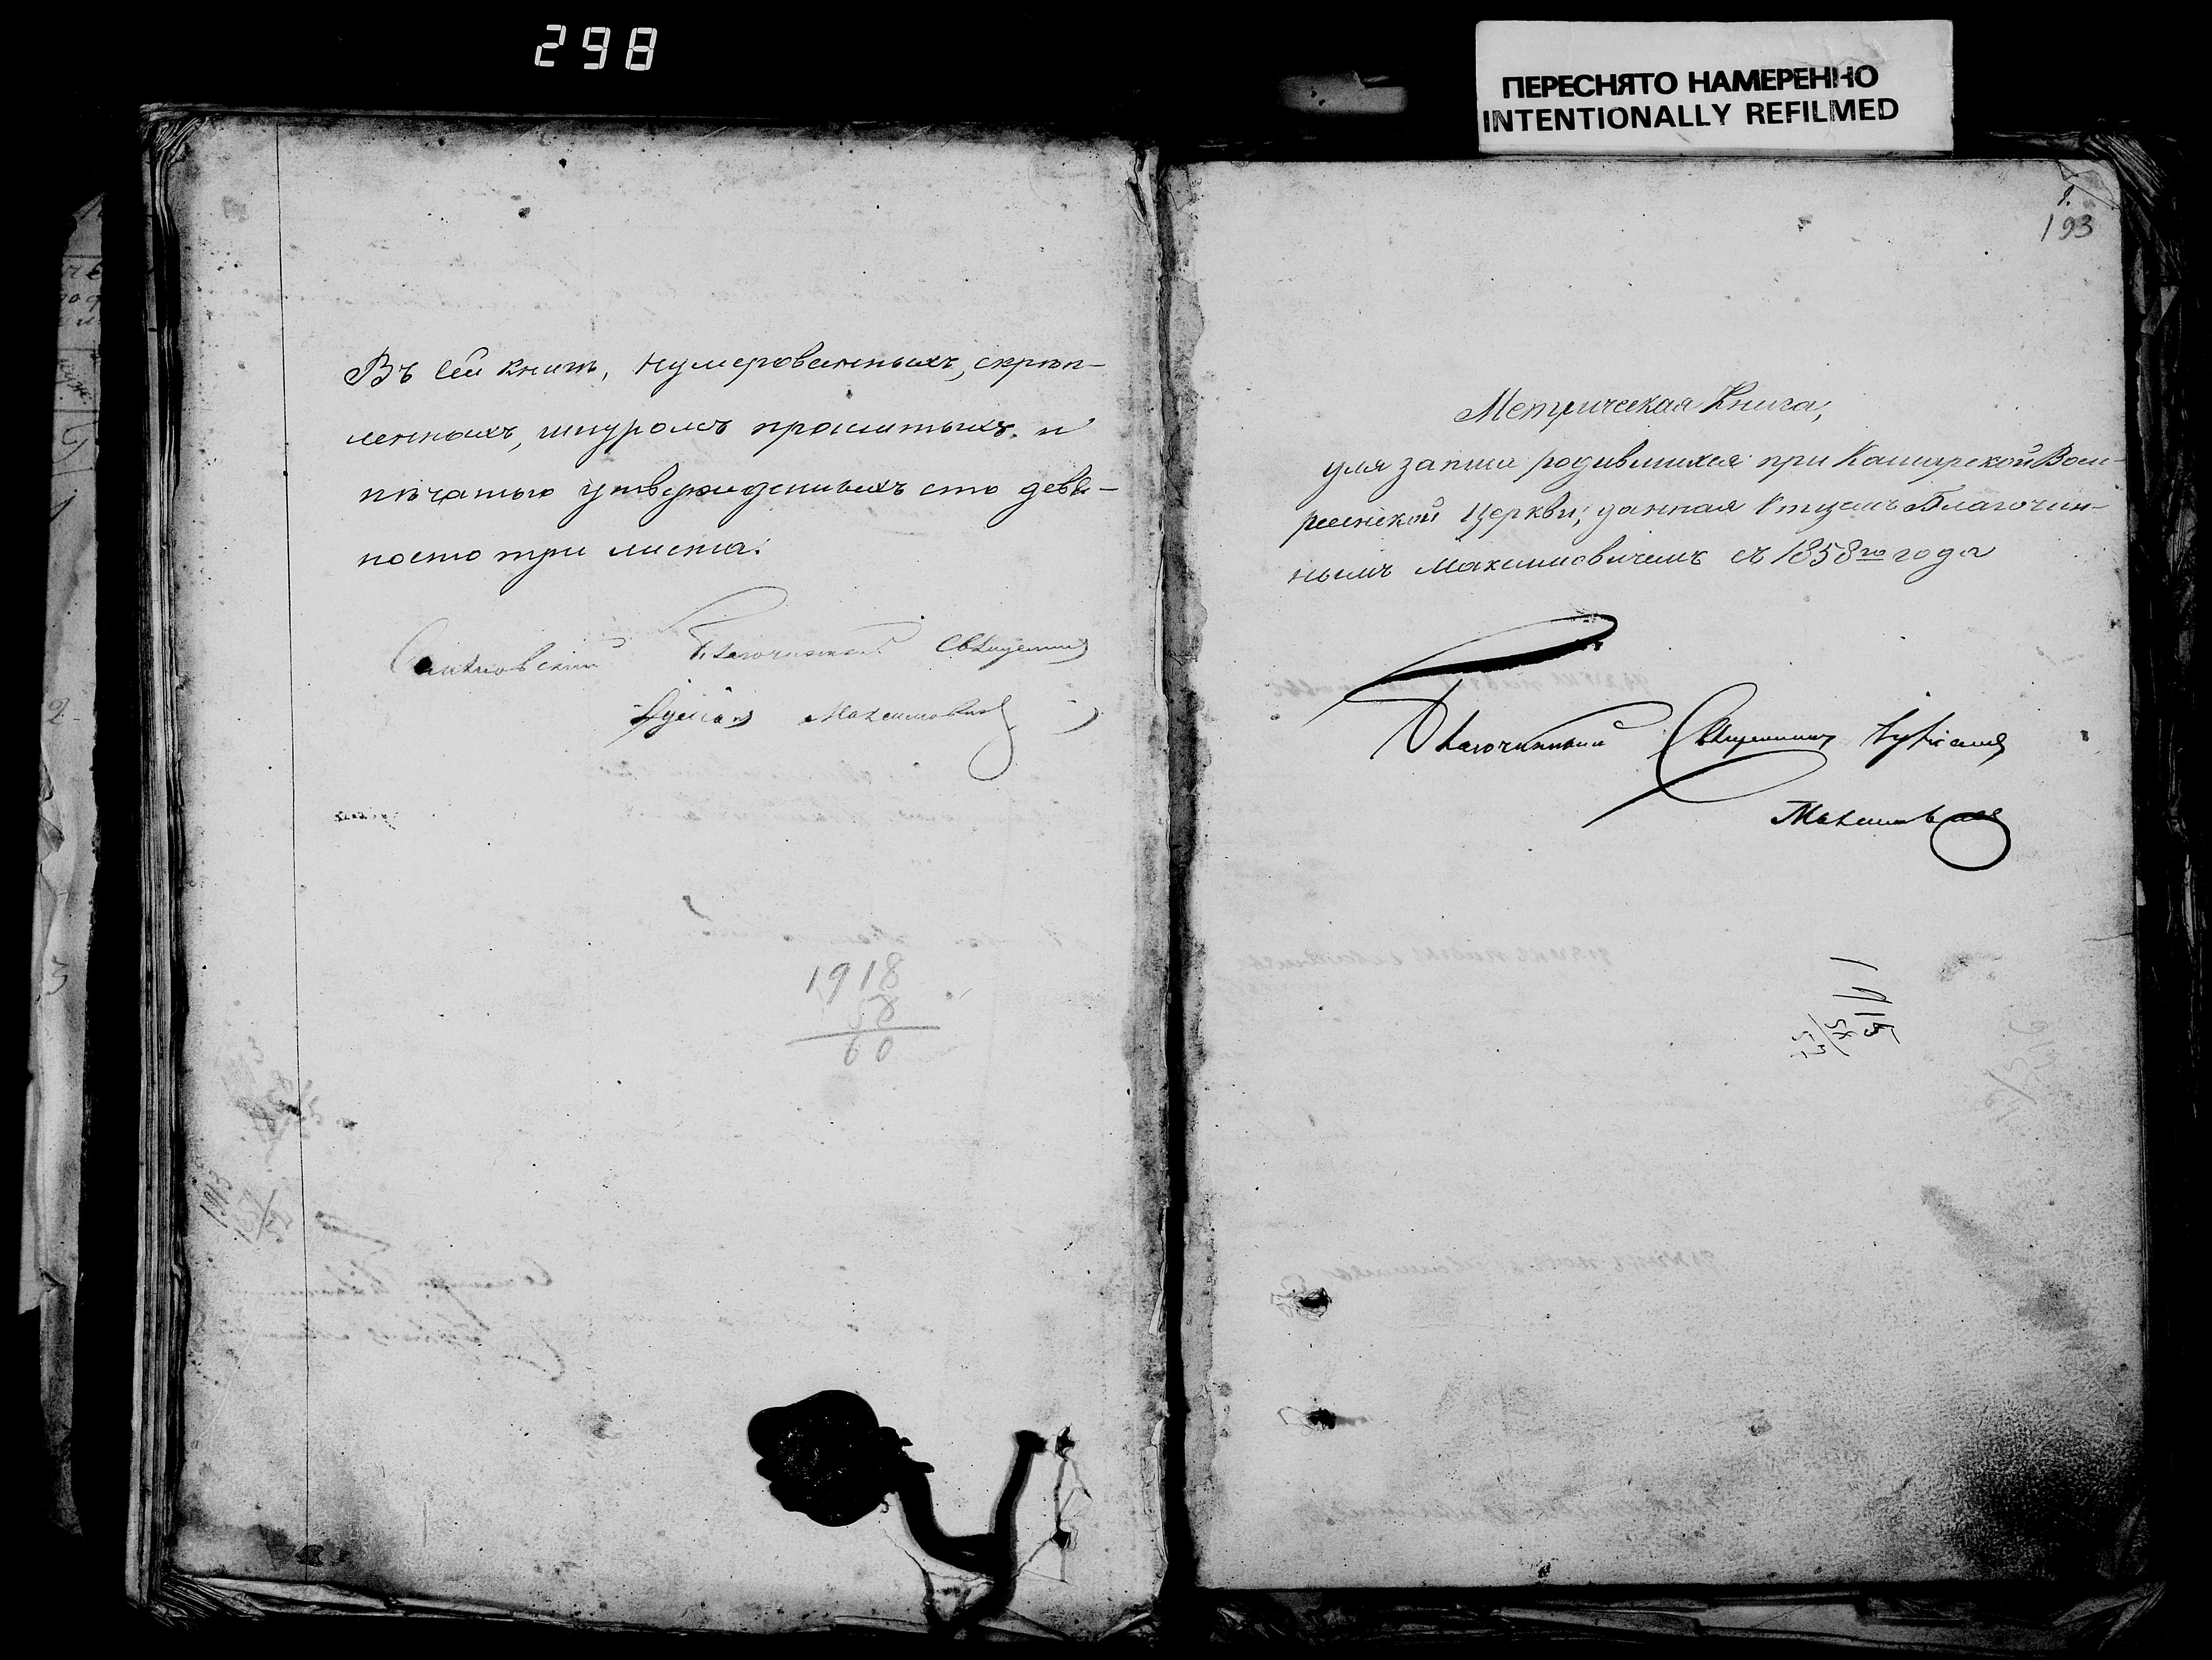 298
ПЕРЕСНЯТО НАМЕРЕННО
INTENTIONALLY REFILMED
Въ сей книгѣ, нумерованныхъ, скрѣп-
ленныхъ, шнуромъ прошитыхъ, и
печатью утвержденныхъ сто девя-
носто три листа.
Благочинный Священникъ
Максимовичъ
1918
58
60
1.
193
Метрическая Книга,
для записи родившихся при Кашарской Воск-
ресенской Церкви, данная Отцемъ Благочин-
нымъ Максимовичемъ съ 1858го года
Благочинный Священникъ
Максимовичъ